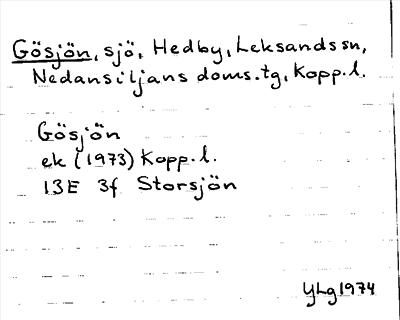 Gösjön, sjö, Hedby, Leksands sn,
Nedansiljans doms.tg, Kopp.l.
Gösjön
ek (1973) Kopp.l.
13E 3f Storsjön
YLg 1974